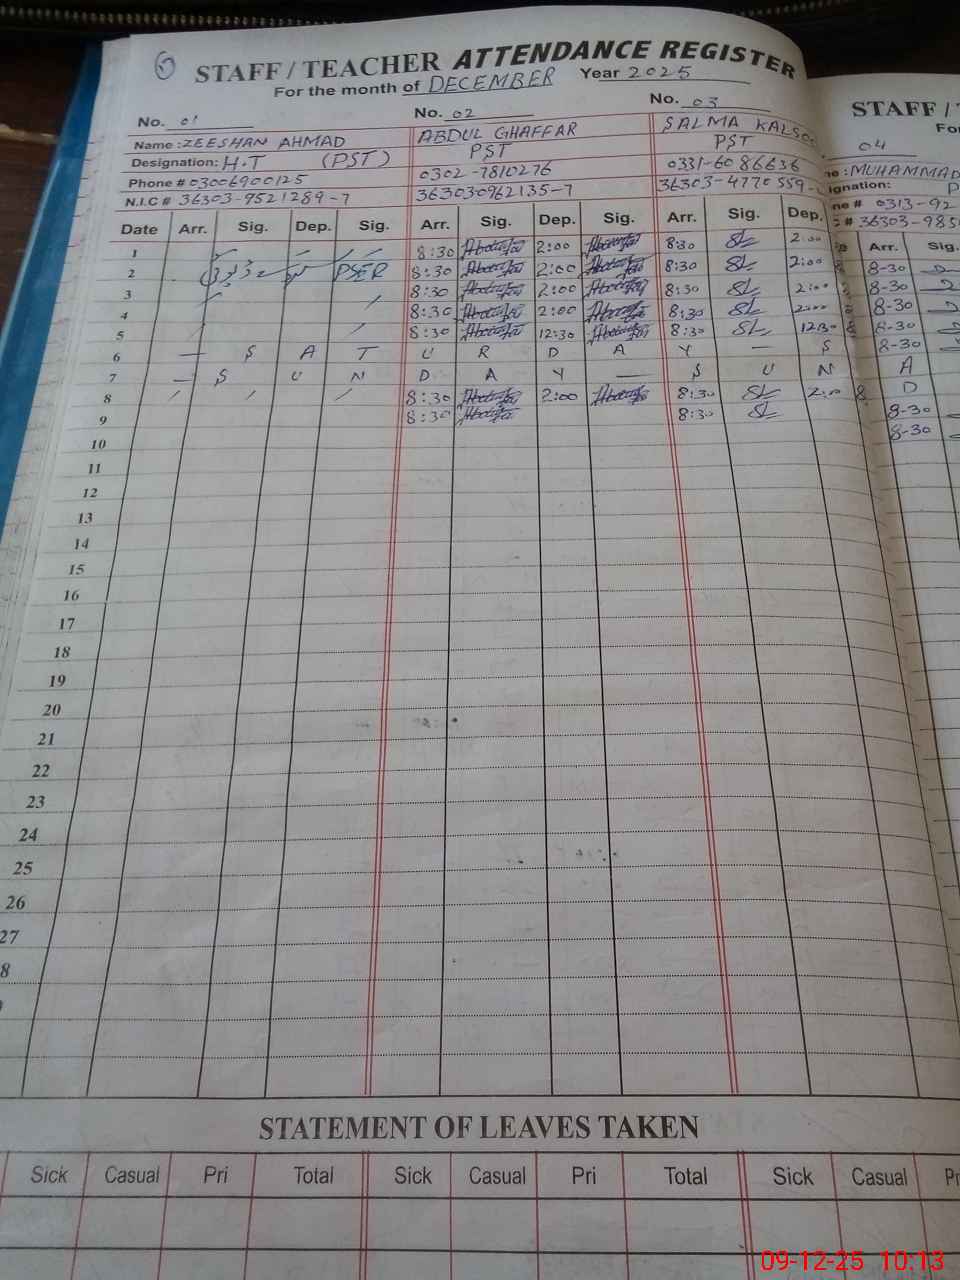 6
STAFF / TEACHER ATTENDANCE REGISTER
For the month of DECEMBER Year 2025
No. 01 No. 02 No. 03
Name : ZEESHAN AHMAD ABDUL GHAFFAR SALMA
Designation: H.T (PST) PST PST
Phone # 03006900125 0302-7810276 0331-6086636
N.I.C # 36303-9521289-7 363030962135-7 36303-4770559-
Date Arr. Sig. Dep. Sig. Arr. Sig. Dep. Sig. Arr. Sig. Dep.
1 8:30 2:00 8:30 SL 2:00
2 PSER 8:30 2:00 8:30 SL 2:00
3 8:30 2:00 8:30 SL 2:00
4 8:30 2:00 8:30 SL 2:00
5 8:30 12:30 8:30 SL 12:30
6 — S A T U R D A Y — S
7 — S U N D A Y — S U N
8 8:30 2:00 8:30 SL 2:00
9 8:30 8:30 SL
10
11
12
13
14
15
16
17
18
19
20
21
22
23
24
25
26
27
8
STAFF / T
Fo
04
: MUHAMMAD
ignation: P
ne # 0313-92
# 36303-985
Arr. Sig.
8-30
8-30
8-30
8-30
8-30
A
D
8-30
8-30
STATEMENT OF LEAVES TAKEN
Sick Casual Pri Total Sick Casual Pri Total Sick Casual Pr
09-12-25 10:13